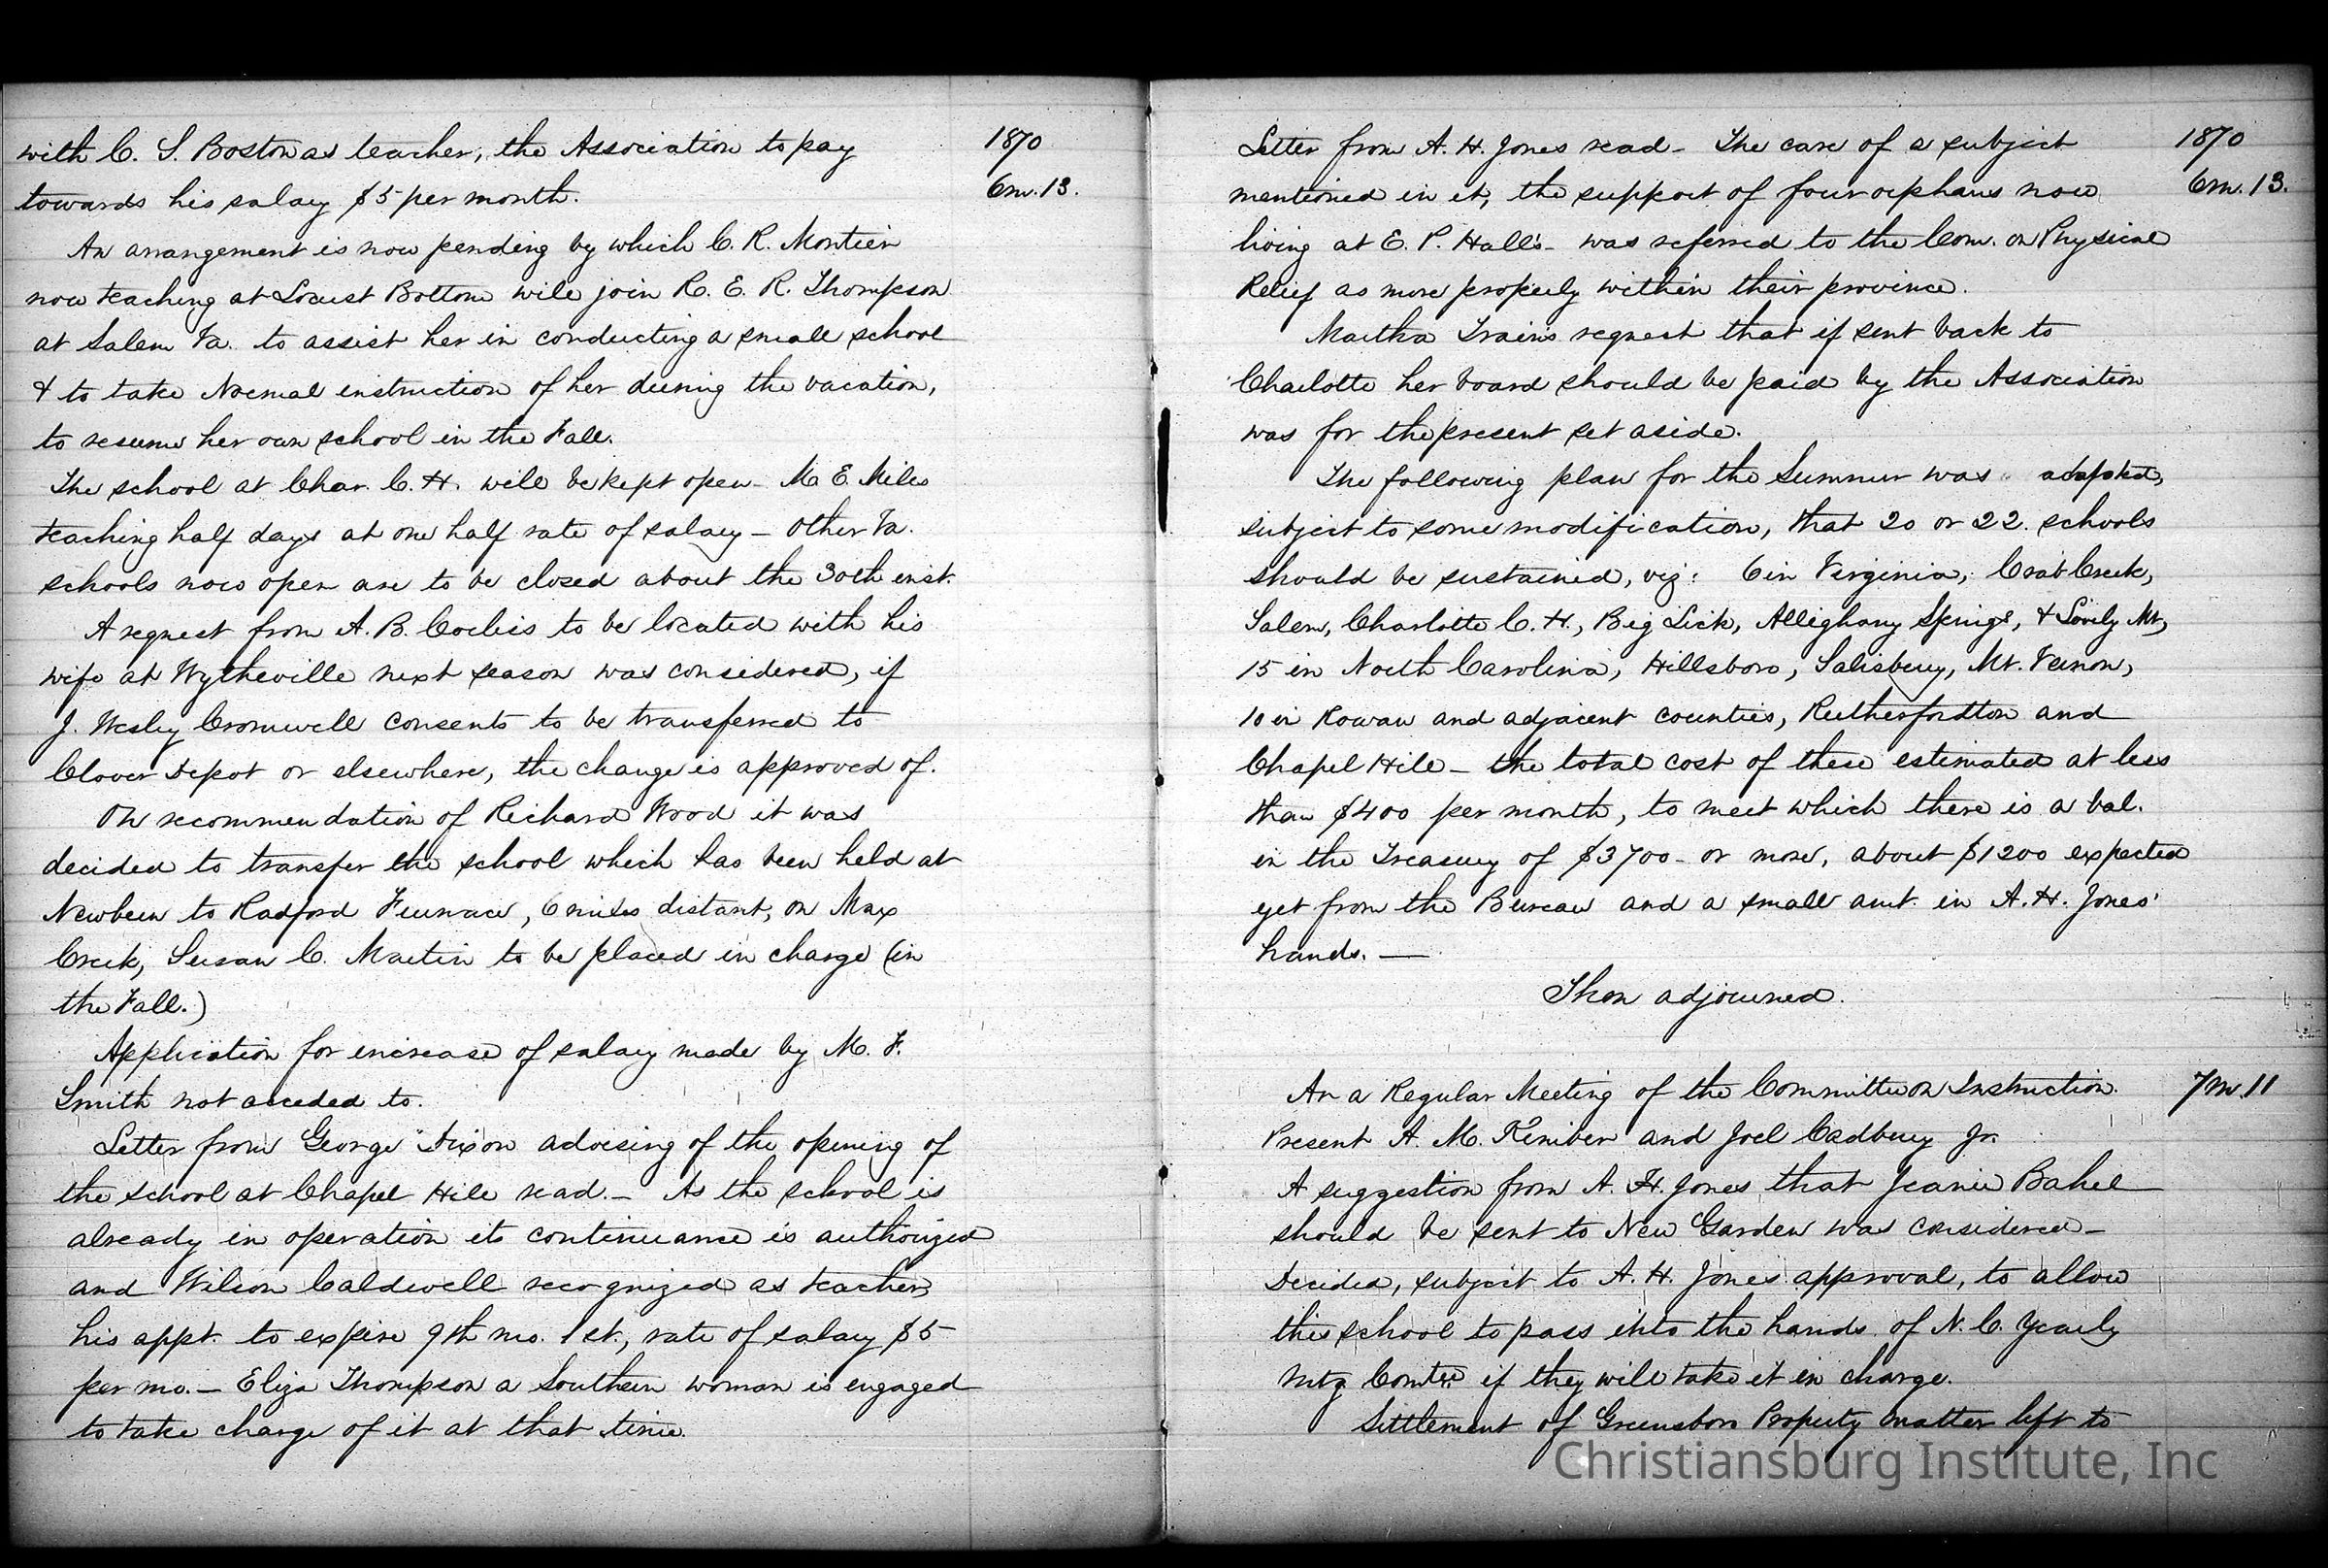 with C. S. Boston as teacher, the Association to pay
towards his salary $5 per month.
An arrangement is now pending by which C. R. Montier
now teaching at Locust Bottom will join R. E. R. Thompson
at Salem Va. to assist her in conducting a small school
& to take Normal instruction of her during the vacation,
to resume her own school in the Fall.
The school at Char. C. H. will be kept open - M E Miles
teaching half days at one half rate of salary - Other Va.
schools now open are to be closed about the 30th inst.
A request from A. B. Corliss to be located with his
wife at Wytheville next season was considered, if
J. Wesley Cromwell consents to be transferred to
Clover Depot or elsewhere, the change is approved of.
On recommendation of Richard Wood it was
decided to transfer the school which has been held at
Newbern to Radford Furnace, 6 miles distant, on Max
Creek, Susan C. Martin to be placed in charge (in
the Fall.)
Application for increase of salary made by M. F.
Smith not acceded to.
Letter from George Dixon advising of the opening of
the school at Chapel Hill read. - As the school is
already in operation its continuance is authorized
and Wilson Caldwell recognized as teacher,
his appt. to expire 9th mo. 1st., rate of salary $5
per mo. - Eliza Thompson a Southern woman is engaged
to take charge of it at that time.
1870
6m. 13.
Letter from A. H. Jones read - The care of a subject
mentioned in it, the support of four orphans now
living at E. P. Hall's - was referred to the Com. on Physical
Relief as more properly within their province.
Martha Train's request that if sent back to
Charlotte her board should be paid by the Association
was for the present set aside.
The following plan for the Summer was adopted,
subject to some modification, that 20 or 22 schools
should be sustained, viz: 6 in Virginia, Crab Creek,
Salem, Charlotte C. H., Big Lick, Alleghany Springs, & Lovily Mt,
15 in North Carolina, Hillsboro, Salisbury, Mt. Vernon,
10 in Rowan and adjacent counties, Rutherfordton and
Chapel Hill - the total cost of these estimated at less
than $400 per month, to meet which there is a bal.
in the Treasury of $3700 - or more, about $1200 expected
yet from the Bureau and a small amt. in A. H. Jones'
hands. -
Then adjourned.
An a Regular Meeting of the Committee on Instruction.
Present A. M. Kimber and Joel Cadbury Jr.
A suggestion from A. H. Jones that Jeanie
should be sent to New Garden was considered -
Decided, subject to A. H. Jones approval, to allow
this school to pass into the hands of N. C. Yearly
Mtg Comtee if they will take it in charge.
Settlement of Greensboro Property matter left to
1870
6m. 13.
7m. 11
Christiansburg Institute, Inc